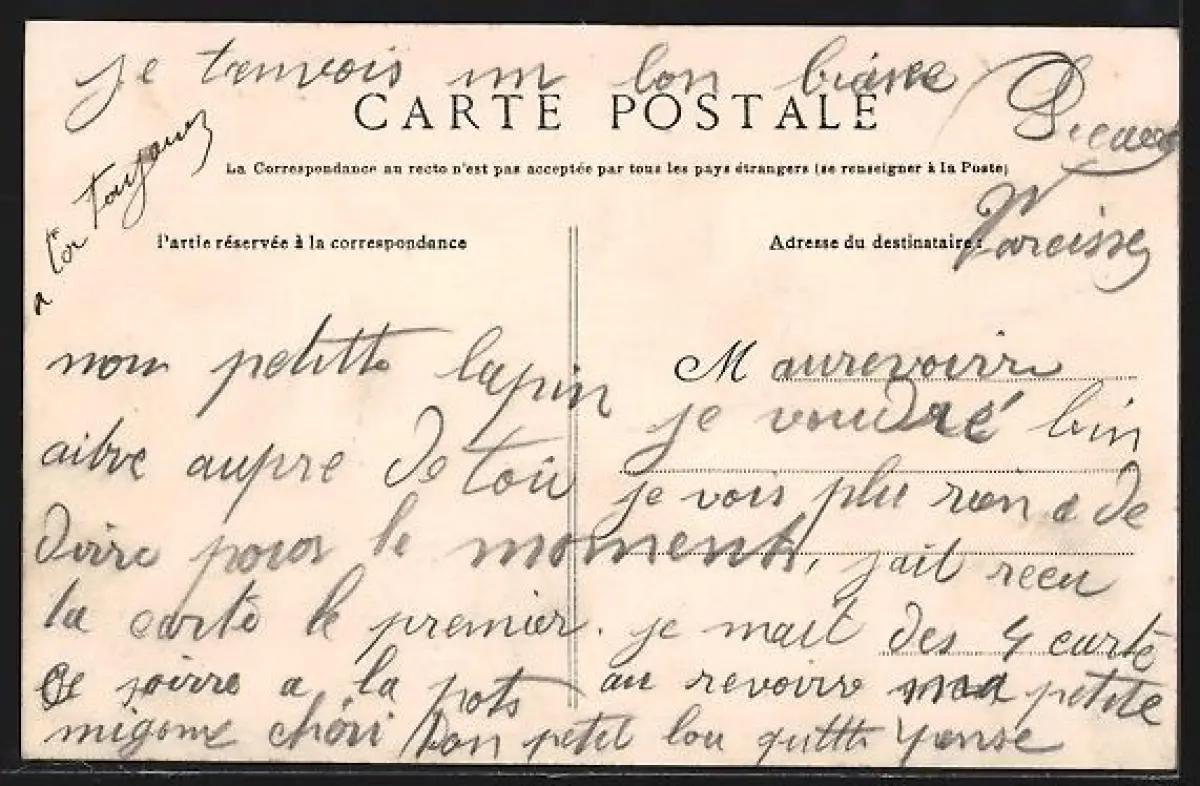 je tanvois un bon
CARTE POSTALE
La Correspondance au recto n'est pas acceptée par tous les pays étrangers (se renseigner à la Poste)
a toi Toujours
Partie réservée à la correspondance
Adresse du destinataire :
Narcisse
mon petitte lapin
M aurevoirre
je voudré bin
aitre aupre de toii
je vois plu rien a de
doire pour le moment, jait recu
la carte le premier. je mait des 4 carte
Ce soirre a la pots au revoirre ma petite
migone chéri ton petit lou quitth panse